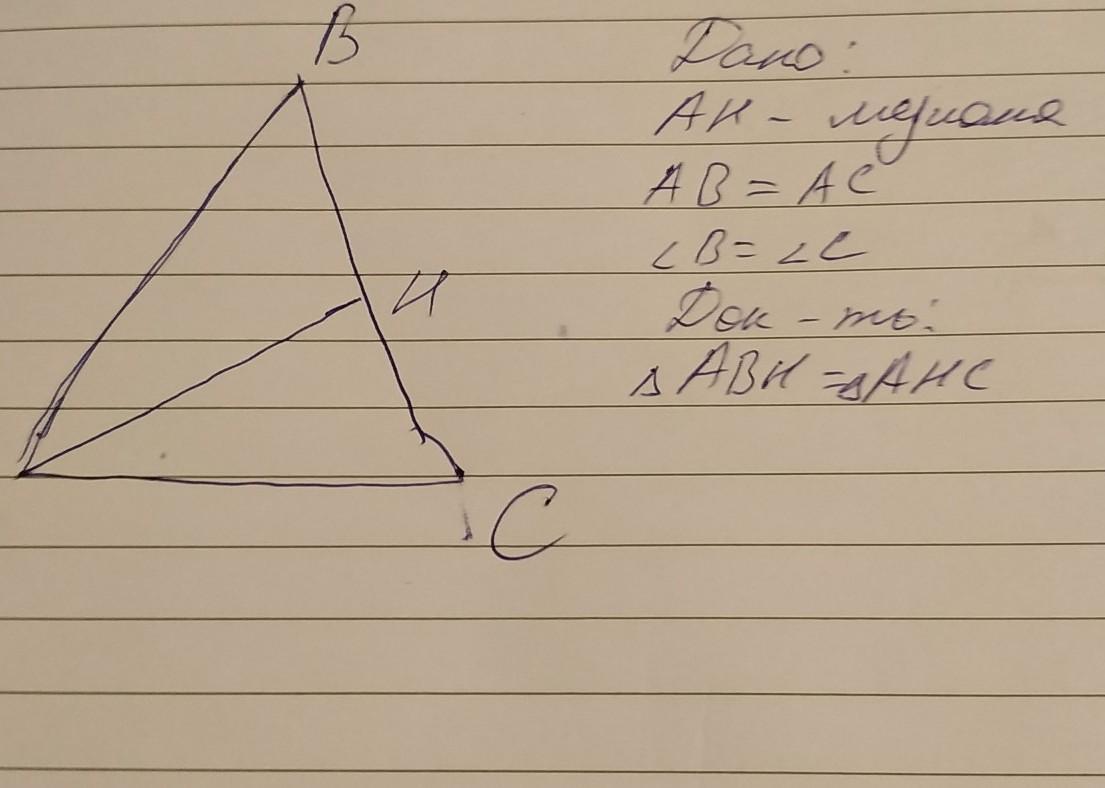 B
H
C
Дано:
AH - медиана
AB = AC
∠B = ∠C
Док-ть:
△ABH = △AHC